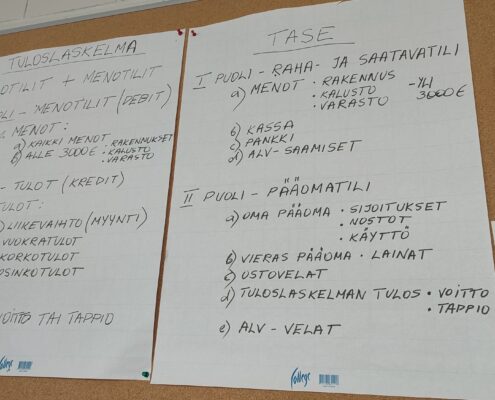 TULOSLASKELMA
OTILIT + MENOTILIT
OLI - MENOTILIT (DEBIT)
MENOT:
a) KAIKKI MENOT • RAKENNUKSET
b) ALLE 3000€ • KALUSTO
• VARASTO
- TULOT (KREDIT)
TULOT:
) LIIKEVAIHTO (MYYNTI)
VUOKRATULOT
KORKOTULOT
OSINKOTULOT
VOITTO TAI TAPPIO
College
TASE
I PUOLI - RAHA- JA SAATAVATILI
a) MENOT • RAKENNUS
• KALUSTO
• VARASTO
3000€
b) KASSA
c) PANKKI
d) ALV - SAAMISET
II PUOLI - PÄÄOMATILI
a) OMA PÄÄOMA • SIJOITUKSET
• NOSTOT
• KÄYTTÖ
b) VIERAS PÄÄOMA • LAINAT
c) OSTOVELAT
d) TULOSLASKELMAN TULOS • VOITTO
• TAPPIO
e) ALV - VELAT
College